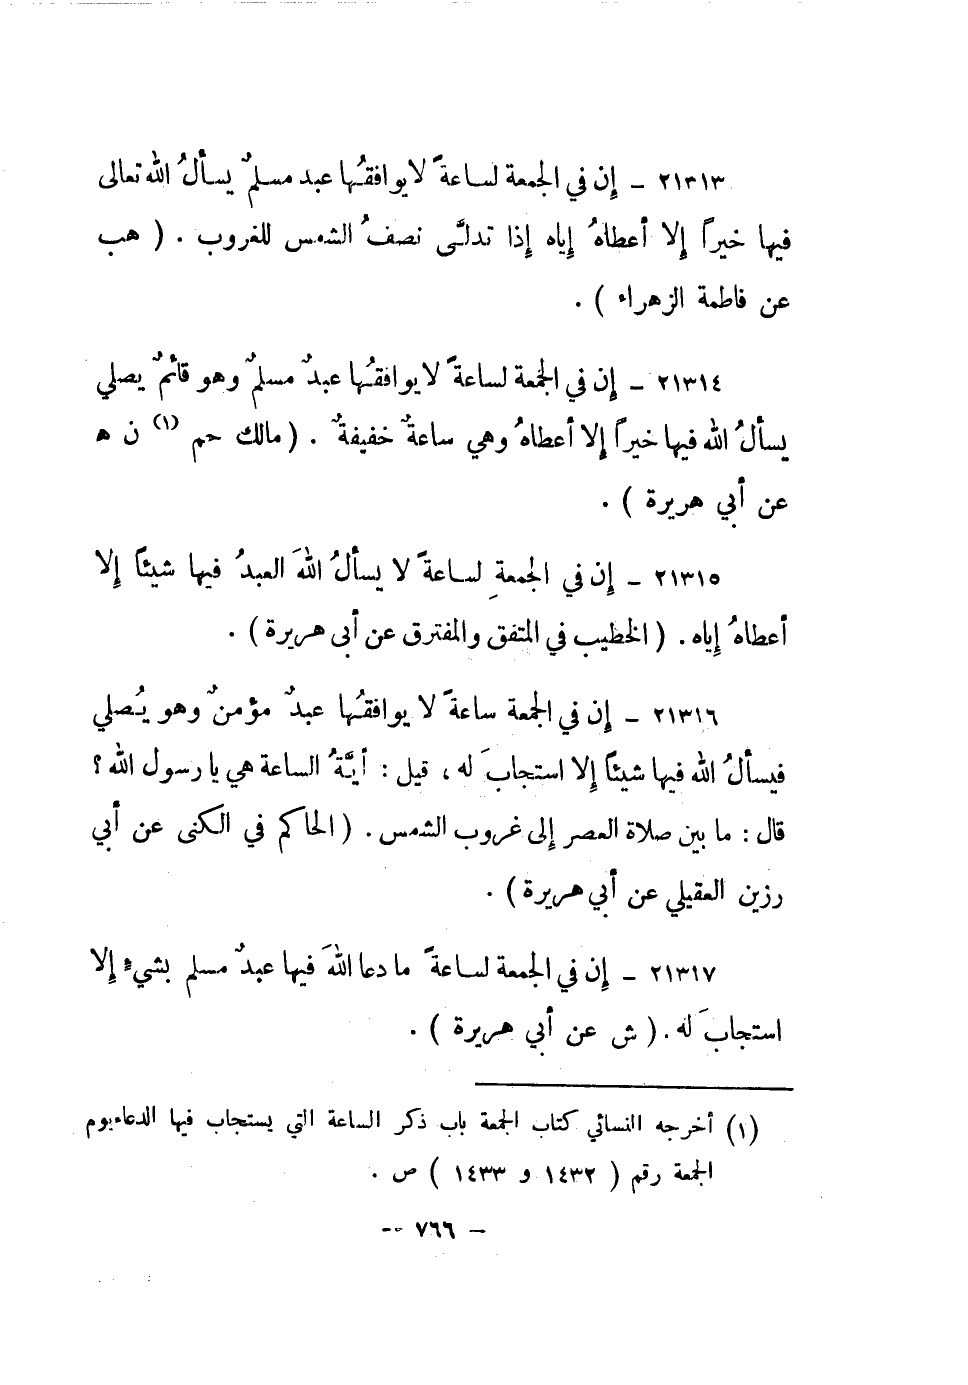 ٢١٣١٣ ــ إن في الجمعة لساعةً لا يوافقُها عبد مسلمٌ يسألُ الله تعالى
فيها خيراً إلا أعطاهُ إياه إذا تدلَّى نصفُ الشمس للغروب . ( هب
عن فاطمة الزهراء ) .
٢١٣١٤ ــ إن في الجمعة لساعةً لا يوافقُها عبدٌ مسلمٌ وهو قائمٌ يصلي
يسألُ الله فيها خيراً إلا أعطاهُ وهي ساعةٌ خفيفةٌ . ( مالك حم (١) ن ه
عن أبي هريرة ) .
٢١٣١٥ ــ إن في الجمعةِ لساعةً لا يسألُ اللهَ العبدُ فيها شيئاً إلا
أعطاهُ إياه . ( الخطيب في المتفق والمفترق عن أبى هريرة ) .
٢١٣١٦ ــ إن في الجمعة ساعةً لا يوافقُها عبدٌ مؤمنٌ وهو يُصلي
فيسألُ الله فيها شيئاً إلا استجابَ له ، قيل : أيَّةُ الساعة هي يا رسول الله ؟
قال : ما بين صلاة العصر إلى غروب الشمس . ( الحاكم في الكنى عن أبي
رزين العقيلي عن أبي هريرة ) .
٢١٣١٧ ــ إن في الجمعة لساعةً ما دعا اللهَ فيها عبدٌ مسلم بشيءٍ إلا
استجابَ له . ( ش عن أبي هريرة ) .
(١) أخرجه النسائي كتاب الجمعة باب ذكر الساعة التي يستجاب فيها الدعاء يوم
الجمعة رقم ( ١٤٣٢ و ١٤٣٣ ) ص .
– ٧٦٦ --